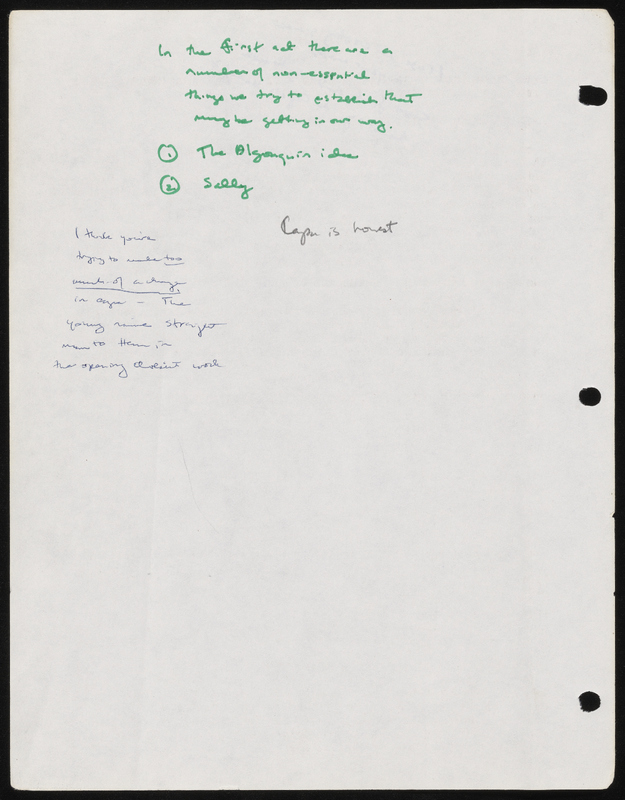 In the first act there are a
number of non-essential
things we try to establish that
may be getting in our way.
① The Algonquin idea
② Sally
Capa is honest
I think you're
trying to make too
much of a change
in Capa - The
young naive straight
man to Hem in
the opening doesn't work